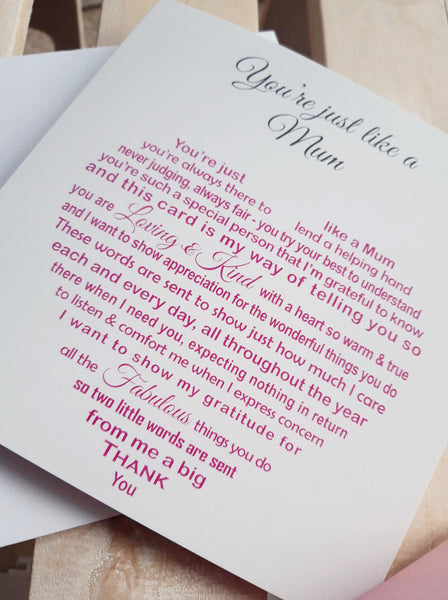 You're just like a
Mum
You're just like a Mum
you're always there to lend a helping hand
never judging, always fair - you try your best to understand
you're such a special person that I'm grateful to know
and this card is my way of telling you so
you are Loving & Kind with a heart so warm & true
and I want to show appreciation for the wonderful things you do
These words are sent to show just how much I care
each and every day, all throughout the year
there when I need you, expecting nothing in return
to listen & comfort me when I express concern
I want to show my gratitude for
all the Fabulous things you do
so two little words are sent
from me a big
THANK
You